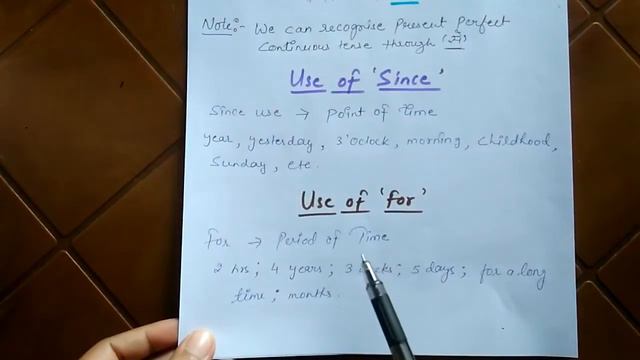 Note:- We can recognise Present Perfect
Continuous tense through (से)
Use of 'Since'
Since use → point of time
year, yesterday, 3'oclock, morning, childhood,
Sunday, etc.
Use of 'for'
for → Period of Time
2 hrs; 4 years; 3 ; 5 days; for a long
time; months.